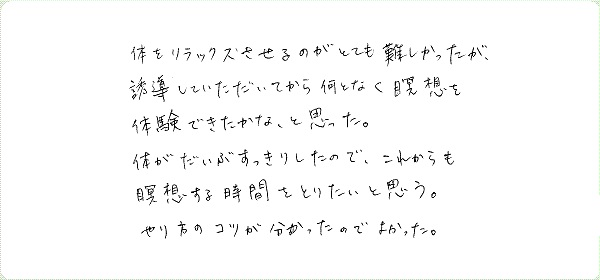 体をリラックスさせるのがとても難しかったが、
誘導していただいてから何となく瞑想を
体験できたかな、と思った。
体がだいぶすっきりしたので、これからも
瞑想する時間をとりたいと思う。
やり方のコツが分かったのでよかった。